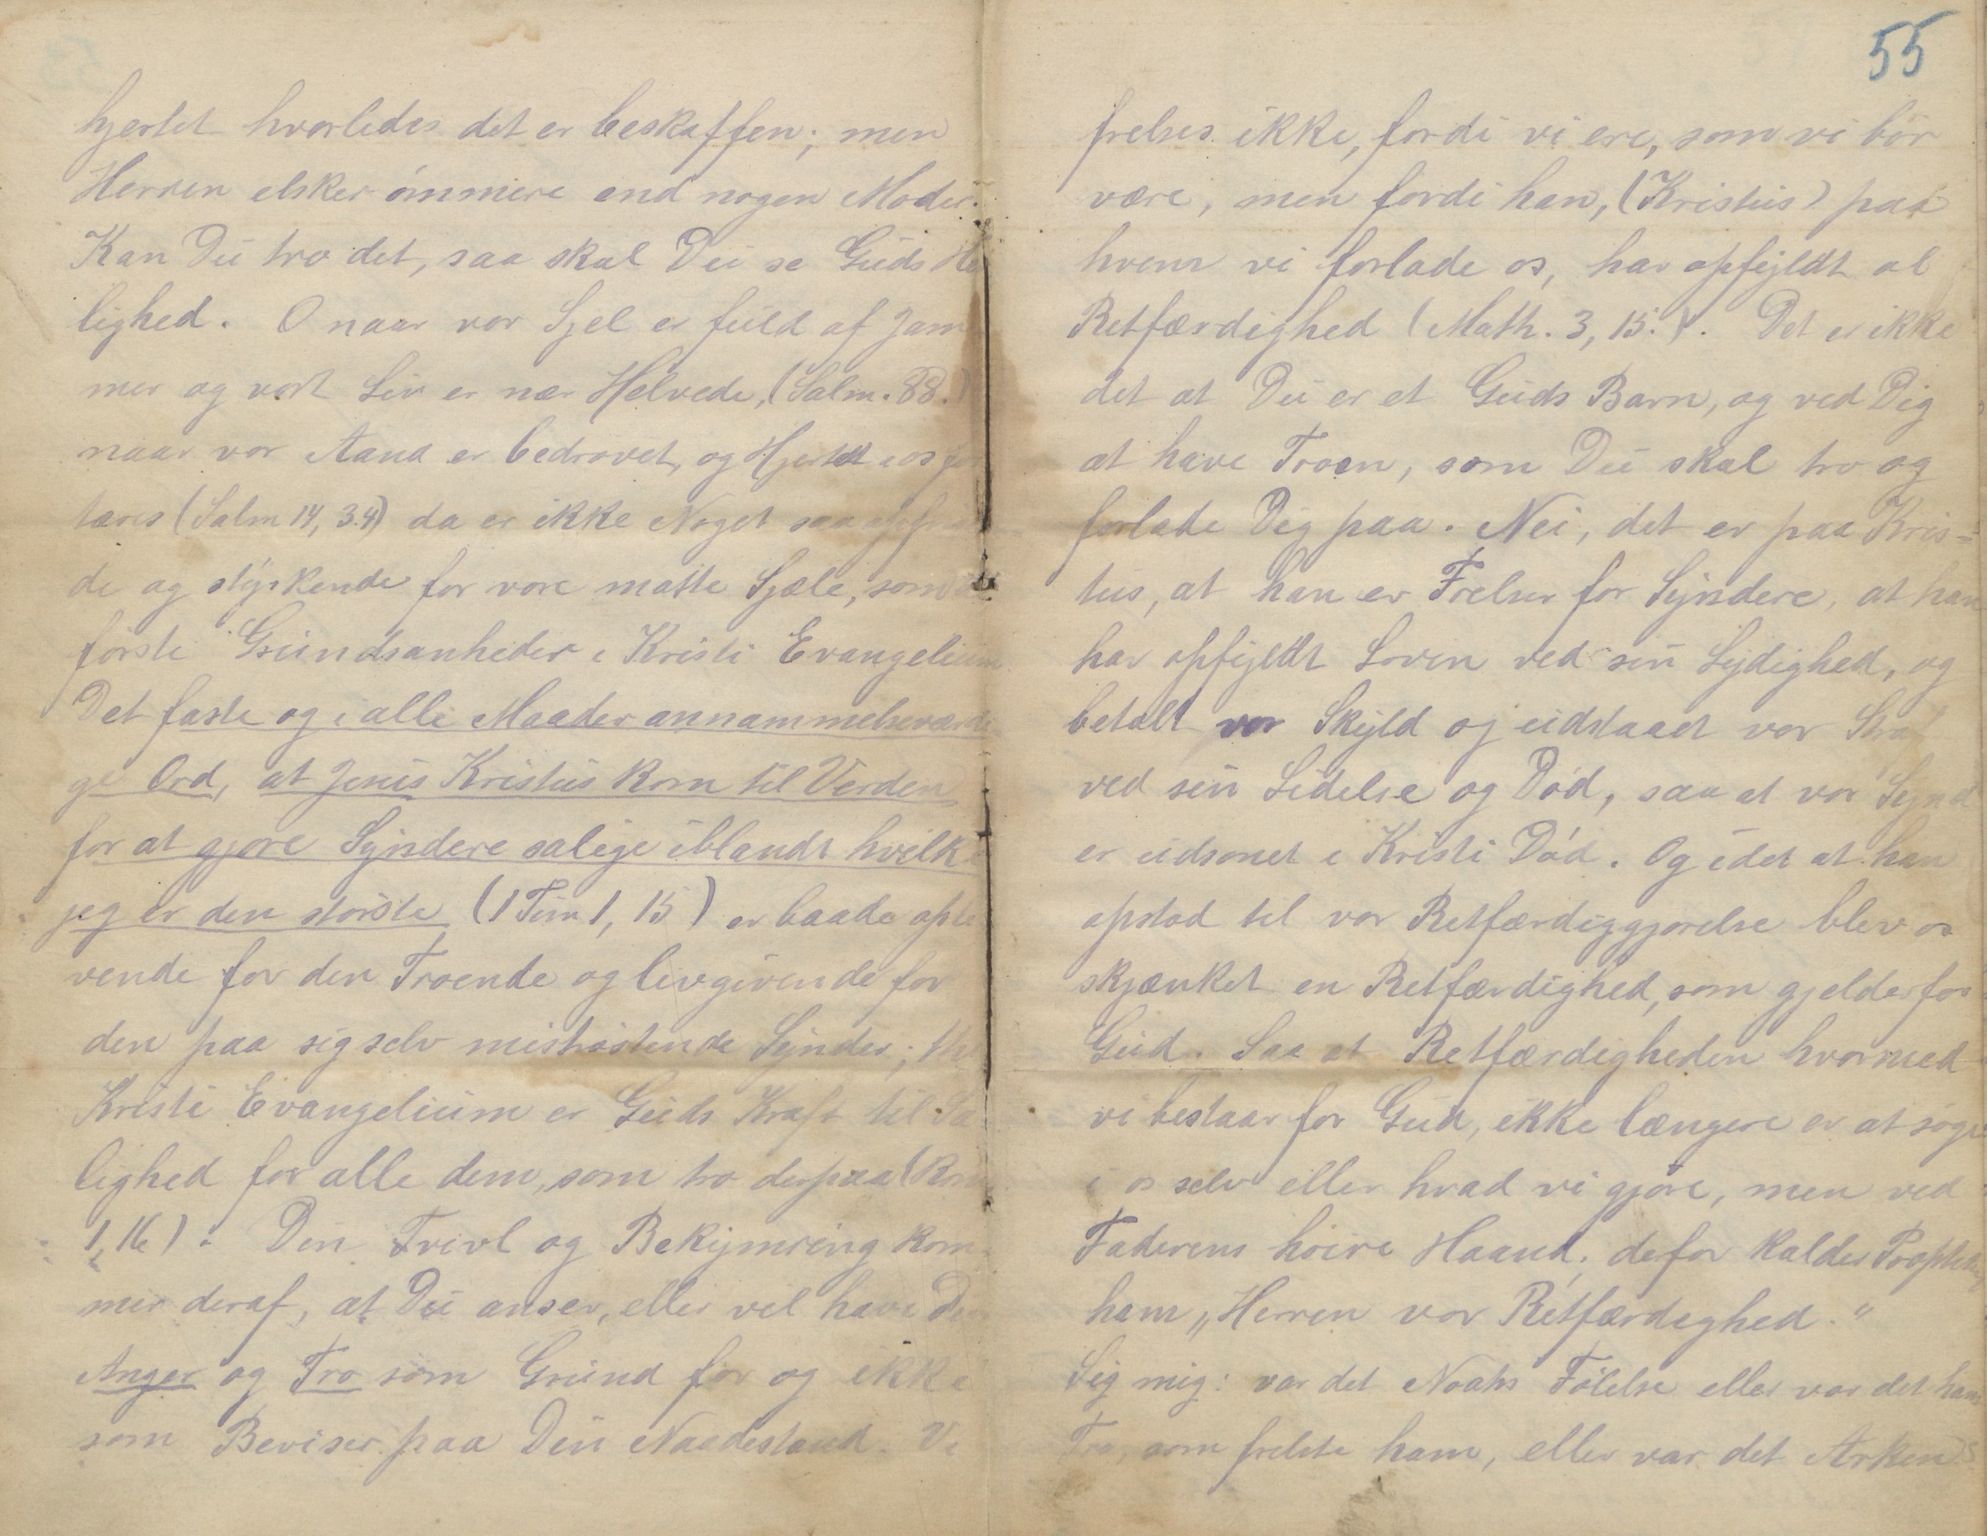 hjertet hvorledes det er beskaffen; men
Herren elsker ömmere end nogen Moder.
Kan Du tro det, saa skal Du se Guds He
lighed. O naar vor Sjel er fuld af Jam
mer og vort Liv er nær Helvede, (Salm. 88.)
naar vor Aand er bedrovet, og Hjertet i os for
tæres (Salm 14, 3.4) da er ikke Noget saa
de og styrkende for vore matte Sjæle, som
förste Grundsanheder i Kristi Evangelium
Det faste og i alle Maader annammelseværdi
ge Ord, at Jesus Kristus kom til Verden
for at gjøre Syndere salige iblandt hvilke
jeg er den störste (1 Tim 1, 15) er baade opli
vende for den Troende og livgivende for
den paa sig selv miströstende Synder; thi
Kristi Evangelium er Guds Kraft til Sa
lighed for alle dem, som tro derpaa (Rom
1, 16). Din Tvivl og Bekymring kom
mer deraf, at Du anser, eller vil have Din
Anger og Tro som Grund for og ikke
som Beviser paa Din Naadestand. Vi
55
frelses ikke, fordi vi ere, som vi bör
være, men fordi han, (Kristus) paa
hvem vi forlade os, har opfyldt al
Retfærdighed (Math. 3, 15.). Det er ikke
det at Du er et Guds Barn, og ved Dig
at have Troen, som Du skal tro og
forlade Dig paa. Nei, det er paa Kris-
tus, at han er Frelser for Syndere, at han
har opfyldt Loven ved sin Lydighed, og
betalt vor Skyld og udstaaet vor Straf
ved sin Lidelse og Död, saa at vor Synd
er udsonet i Kristi Död. Og idet at han
opstod til vor Retfærdiggjorelse blev os
skjænket en Retfærdighed, som gjelder for
Gud. Saa at Retfærdigheden hvormed
vi bestaar for Gud, ikke længere er at söge
i os selv eller hvad vi gjöre, men ved
Faderens höire Haand; defor kalder Propheten
ham „Herren vor Retfærdighed."
Sig mig: var det Noahs Fölelse eller var det hans
Tro, som frelste ham, eller var det Arken